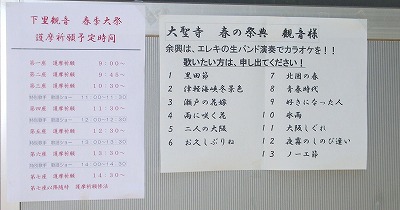 下里観音 春季大祭
護摩祈願予定時間
第一座 護摩祈願 9:00~
第二座 護摩祈願 9:45~
第三座 護摩祈願 10:30~
11:00~11:30
第四座 護摩祈願 11:30~
第五座 護摩祈願 12:30~
13:00~13:30
第六座 護摩祈願 13:30~
14:00~14:30
第七座 護摩祈願 14:30~
第七座以降随時 護摩祈願修法
大聖寺 春の祭典 観音様
余興は、エレキの生バンド演奏でカラオケを!!
歌いたい方は、申し出てください!
1 黒田節
2 津軽海峡冬景色
3 瀬戸の花嫁
4 雨に咲く花
5 二人の大阪
6 お久しぶりね
7 北国の春
8 青春時代
9 好きになった人
10 氷雨
11 大阪しぐれ
12 夜霧のしのび逢い
13 ノーエ節